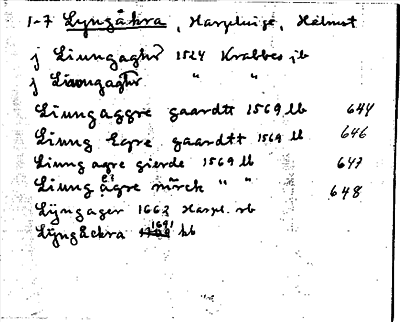 1-7 Lyngåkra, Harplinge, Halmst
j Liungaghr 1524 Krabbes jb
j Liwngaghr " "
Liungaggre gaardtt 1569 lb 644
Liung Egre gaardtt 1569 lb 646
Liung agre gierde 1569 lb 647
Liung ågre mårck " " 648
Lÿngager 1662 Harpl. rb
Lÿngåckra 1691 kb